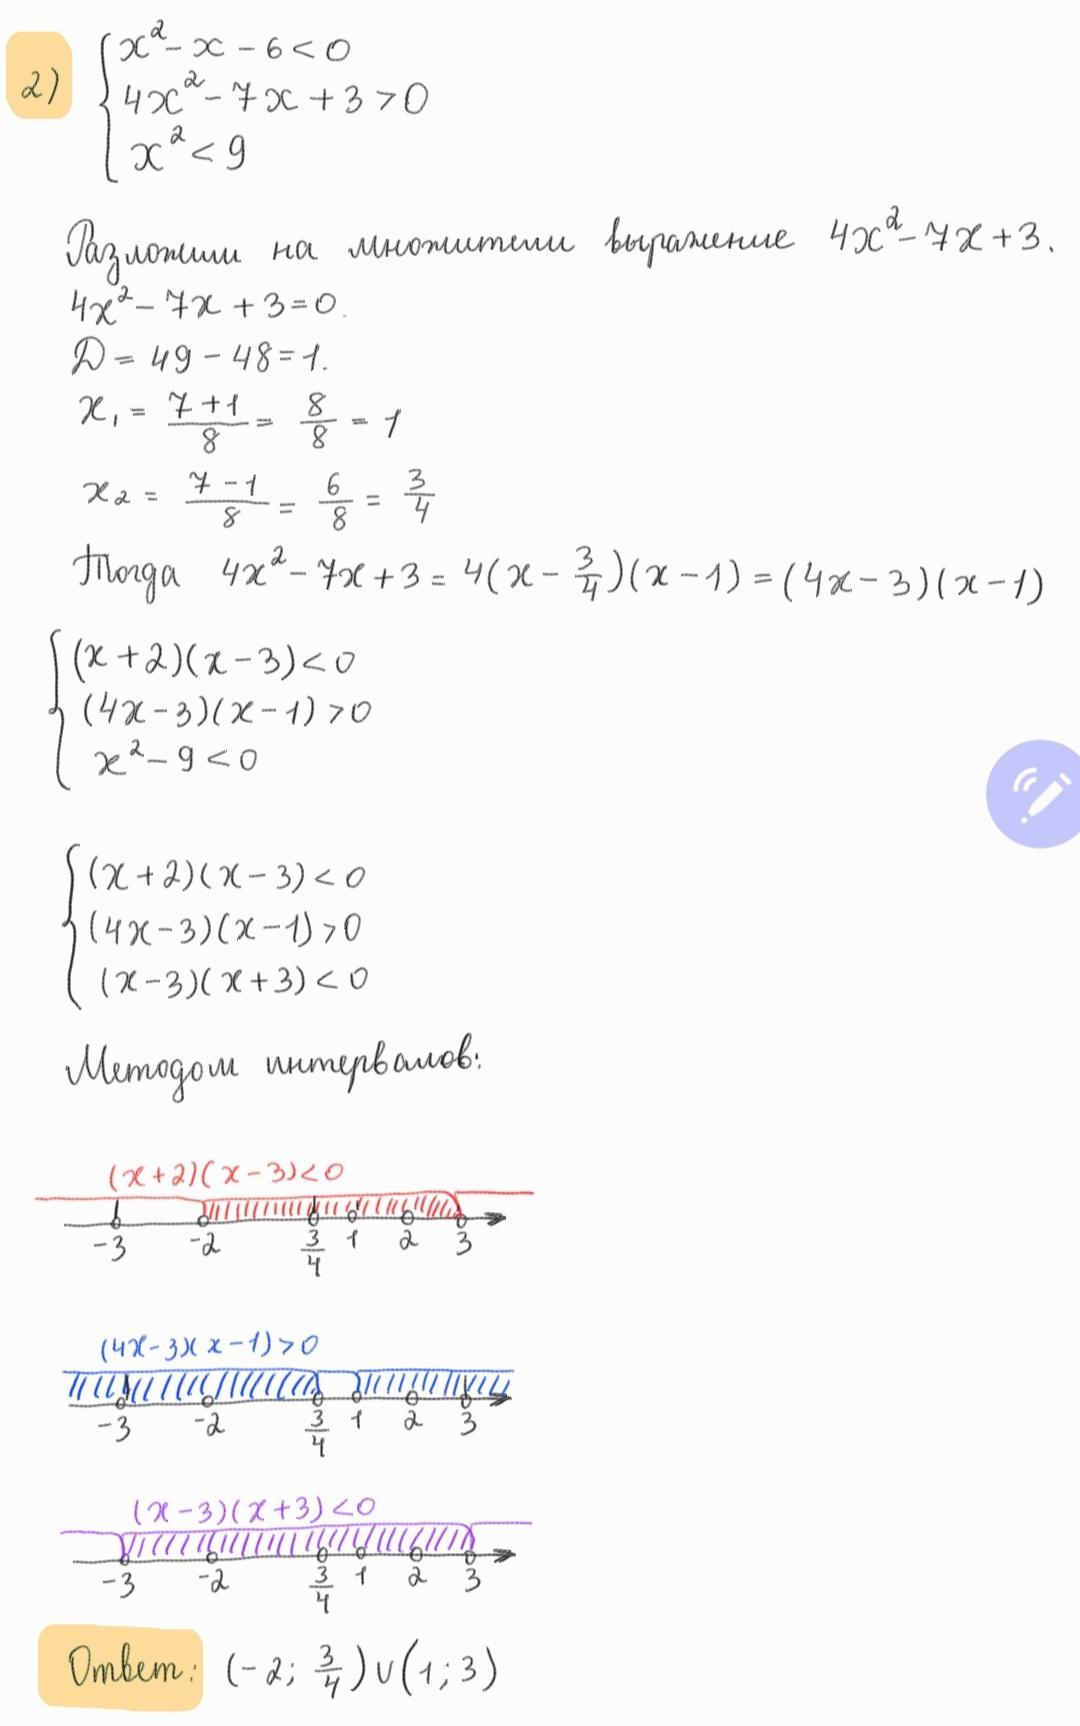 2) { x² - x - 6 < 0
4x² - 7x + 3 > 0
x² < 9
Разложим на множители выражение 4x² - 7x + 3.
4x² - 7x + 3 = 0.
D = 49 - 48 = 1.
x₁ = (7+1)/8 = 8/8 = 1
x₂ = (7-1)/8 = 6/8 = 3/4
Тогда 4x² - 7x + 3 = 4(x - 3/4)(x - 1) = (4x - 3)(x - 1)
{ (x + 2)(x - 3) < 0
(4x - 3)(x - 1) > 0
x² - 9 < 0
{ (x + 2)(x - 3) < 0
(4x - 3)(x - 1) > 0
(x - 3)(x + 3) < 0
Методом интервалов:
(x + 2)(x - 3) < 0
-3 -2 3/4 1 2 3
(4x - 3)(x - 1) > 0
-3 -2 3/4 1 2 3
(x - 3)(x + 3) < 0
-3 -2 3/4 1 2 3
Ответ: (-2; 3/4) ∪ (1; 3)